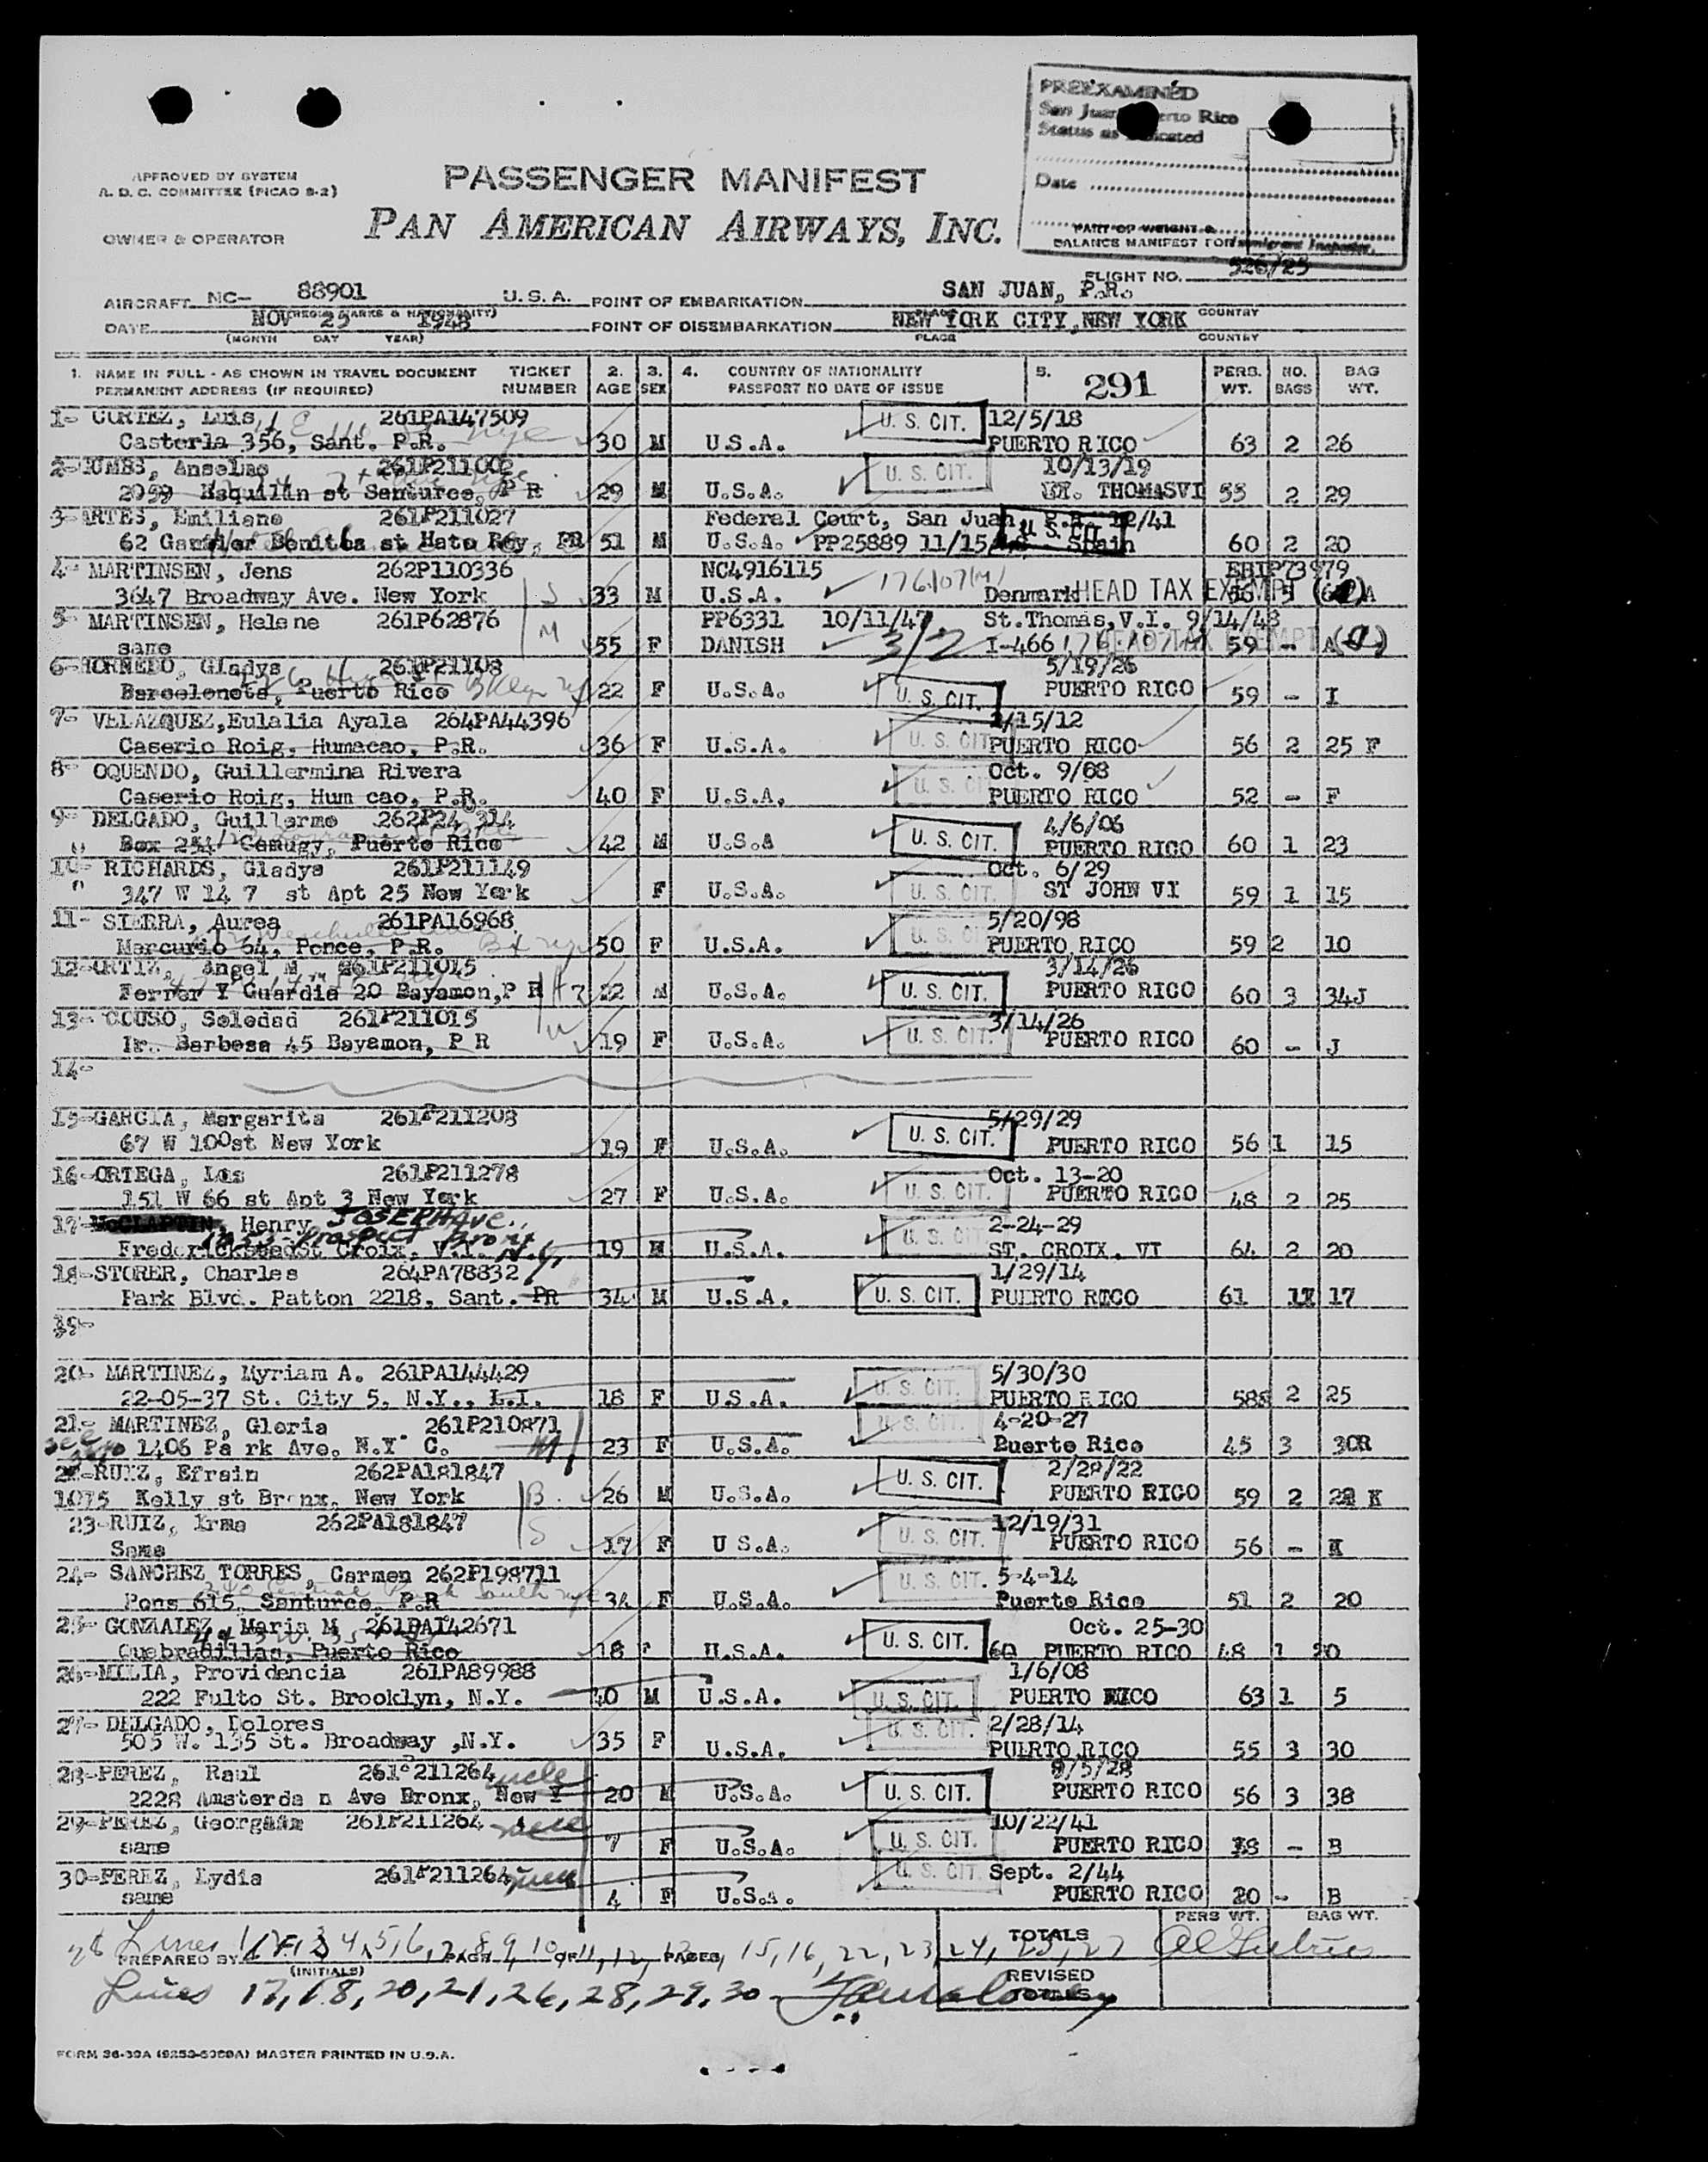 PREEXAMINED
San Juan, Puerto Rico
Status as Indicated
Date
Immigrant Inspector.
APPROVED BY SYSTEM
A. D. C. COMMITTEE (PICAO 8-2)
OWNER & OPERATOR
PASSENGER MANIFEST
PAN AMERICAN AIRWAYS, INC.
PART OF WEIGHT &
BALANCE MANIFEST FOR
FLIGHT NO. 526/25
AIRCRAFT NC- 88901 U.S.A. POINT OF EMBARKATION SAN JUAN, P.R.
(REGIS. MARKS & NATIONALITY) PLACE COUNTRY
DATE NOV 25 1948 POINT OF DISEMBARKATION NEW YORK CITY, NEW YORK
(MONTH DAY YEAR) PLACE COUNTRY
1. NAME IN FULL - AS SHOWN IN TRAVEL DOCUMENT TICKET 2. 3. 4. COUNTRY OF NATIONALITY 5. 291 PERS. NO. BAG
PERMANENT ADDRESS (IF REQUIRED) NUMBER AGE SEX PASSPORT NO DATE OF ISSUE WT. BAGS WT.
1- CORTEZ, Luis 261PA147509 U. S. CIT. 12/5/18
Casterla 356, Sant. P.R. 30 M U.S.A. PUERTO RICO 63 2 26
2- Anselmo 261P211002 U. S. CIT. 10/13/19
2059 Esquilin st Santurce, P R 29 M U.S.A. ST. THOMAS VI 55 2 29
3- ARTES, Emiliano 261P211027 Federal Court, San Juan, P.R. 12/41
62 Benitez st Hato Rey, PR 51 M U.S.A. PP25889 11/15 U. S. CIT. Spain 60 2 20
4- MARTINSEN, Jens 262P110336 NC4916115 176107(M)
3647 Broadway Ave. New York S 33 M U.S.A. Denmark HEAD TAX EXEMPT
5- MARTINSEN, Helene 261P62876 PP6331 10/11/47 St.Thomas,V.I. 9/14/48
same M 55 F DANISH 3/2 I-466 HEAD TAX EXEMPT 59 - A
6- HORNEDO, Gladys 261P21108 5/19/26
Barceloneta, Puerto Rico Bklyn ny 22 F U.S.A. U. S. CIT. PUERTO RICO 59 - I
7- VELAZQUEZ,Eulalia Ayala 264PA44396 2/15/12
Caserio Roig, Humacao, P.R. 36 F U.S.A. U. S. CIT. PUERTO RICO 56 2 25 F
8- OQUENDO, Guillermina Rivera Oct. 9/08
Caserio Roig, Hum cao, P.R. 40 F U.S.A. U. S. CIT. PUERTO RICO 52 - F
9- DELGADO, Guillermo 262P24 314 4/6/06
Box 254 Camugy, Puerto Rico 42 M U.S.A U. S. CIT. PUERTO RICO 60 1 23
10- RICHARDS, Gladys 261P211149 Oct. 6/29
347 W 14 7 st Apt 25 New York F U.S.A. U. S. CIT. ST JOHN VI 59 1 15
11- SIERRA, Aurea 261PA16968 5/20/98
Mercurio 64, Ponce, P.R. 50 F U.S.A. U. S. CIT. PUERTO RICO 59 2 10
12- ORTIZ, Angel M 261P211015 3/14/26
Ferrer Y Guardia 20 Bayamon,P R H 22 M U.S.A. U. S. CIT. PUERTO RICO 60 3 34J
13- COUSO, Soledad 261P211015 3/14/26
Ir. Barbosa 45 Bayamon, P R W 19 F U.S.A. U. S. CIT. PUERTO RICO 60 - J
14-
15- GARCIA, Margarita 261P211208 5/29/29
67 W 100st New York 19 F U.S.A. U. S. CIT. PUERTO RICO 56 1 15
16- ORTEGA, 261P211278 Oct. 13-20
151 W 66 st Apt 3 New York 27 F U.S.A. U. S. CIT. PUERTO RICO 48 2 25
17- Henry JOSEPH Ave. 2-24-29
Prospect Bronx N.Y.
Fredericksteadst Croix, V.I. 19 M U.S.A. U. S. CIT. ST. CROIX, VI 64 2 20
18- STORER, Charles 264PA78832 1/29/14
Park Blvd. Patton 2218, Sant. PR 34 M U.S.A. U. S. CIT. PUERTO RICO 61 17
19-
20- MARTINEZ, Myriam A. 261PA144429 5/30/30
22-05-37 St. City 5, N.Y., L.I. 18 F U.S.A. U. S. CIT. PUERTO RICO 58 2 25
21- MARTINEZ, Gloria 261P210871 U. S. CIT. 4-20-27
1406 Pa rk Ave. N.Y C. M 23 F U.S.A. Puerto Rico 45 3 30R
22- RUIZ, Efrain 262PA181847 2/28/22
1075 Kelly st Bronx, New York B 26 M U.S.A. U. S. CIT. PUERTO RICO 59 2 22 K
23- RUIZ, Irma 262PA181847 12/19/31
Same S 17 F U S.A. U. S. CIT. PUERTO RICO 56 - K
24- SANCHEZ TORRES, Carmen 262P198711 U. S. CIT. 5-4-14
240 Central Park South nyc
Pons 615, Santurce, P.R 34 F U.S.A. Puerto Rico 51 2 20
25- GONZALEZ, Maria M 261PA142671 Oct. 25-30
Quebradillas, Puerto Rico 18 F U.S.A. U. S. CIT. 60 PUERTO RICO 48 1 20
26- MILIA, Providencia 261PA89988 1/6/08
222 Fulto St. Brooklyn, N.Y. 40 M U.S.A. U. S. CIT. PUERTO RICO 63 1 5
27- DELGADO, Dolores U. S. CIT. 2/28/14
505 W. 135 St. Broadway ,N.Y. 35 F U.S.A. PUERTO RICO 55 3 30
28- PEREZ, Raul 261P211264 uncle 9/5/28
2228 Amsterda n Ave Bronx, New Y 20 M U.S.A. U. S. CIT. PUERTO RICO 56 3 38
29- PEREZ, 261P211264 niece 10/22/41
same 7 F U.S.A. U. S. CIT. PUERTO RICO 38 - B
30- PEREZ, Lydia 261P211264 niece U. S. CIT. Sept. 2/44
same 4 F U.S.A. PUERTO RICO 20 - B
TOTALS PERS WT. BAG WT.
Lines 1, 2, 3, 4, 5, 6, 7, 8, 9, 10, 11, 12, 13, 15, 16, 22, 23, 24, 25, 27
PREPARED BY PAGE OF PAGES
(INITIALS)
REVISED TOTALS
Lines 17, 18, 20, 21, 26, 28, 29, 30
FORM 36-39A (9250-5389A) MASTER PRINTED IN U.S.A.